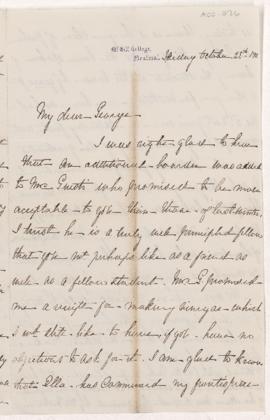 McGill College,
Montreal, Friday October 25th
My dear George
I was right glad to hear
that an additional boarder was added
to Mr who promised to be more
acceptable to you than those of last winter.
I trust he is a truly well principled fellow
that you may perhaps like as a friend as
well as a fellow student. Mr G promised
me a for making vinegar which
I like to have if you have no
objections to ask for it. I am glad to know
that Ella has commenced my